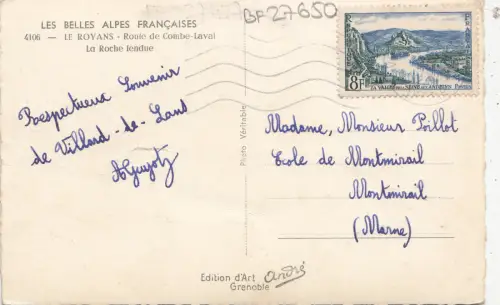 LES BELLES ALPES FRANÇAISES
4106 - LE ROYANS - Route de Combe-Laval
La Roche fendue
BF27650
8F
Respectueux Souvenir
de Villard-de-Lans
AGuyot
Photo Véritable
Madame, Monsieur Poillot
Ecole de Montmirail
Montmirail
(Marne)
Edition d'Art André
Grenoble